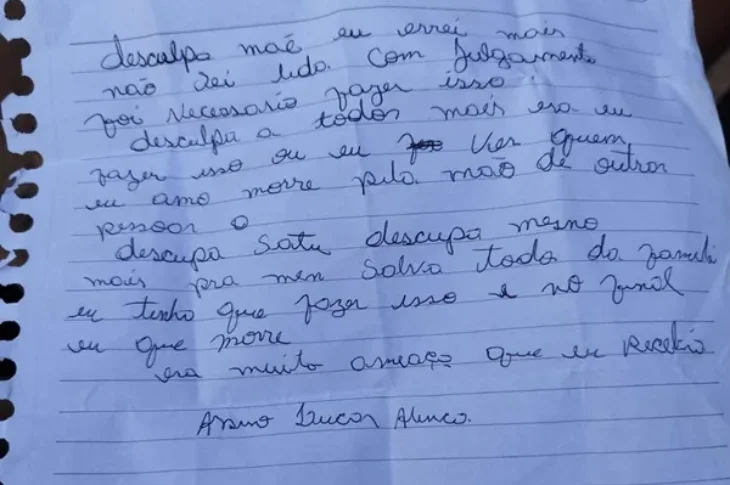 desculpa mãe eu errei mais
não sei tudo. com julgamento
foi necessario fazer isso.
desculpa a todos mais era eu
fazer isso ou eu ver quem
eu amo morre pela mão de outras
pessoas
descupa Satu descupa mesmo
mais pra mim salva todo da famili
eu tenho que fazer isso e no funal
eu que morre
era muito ameaço que eu recebia
Lucas